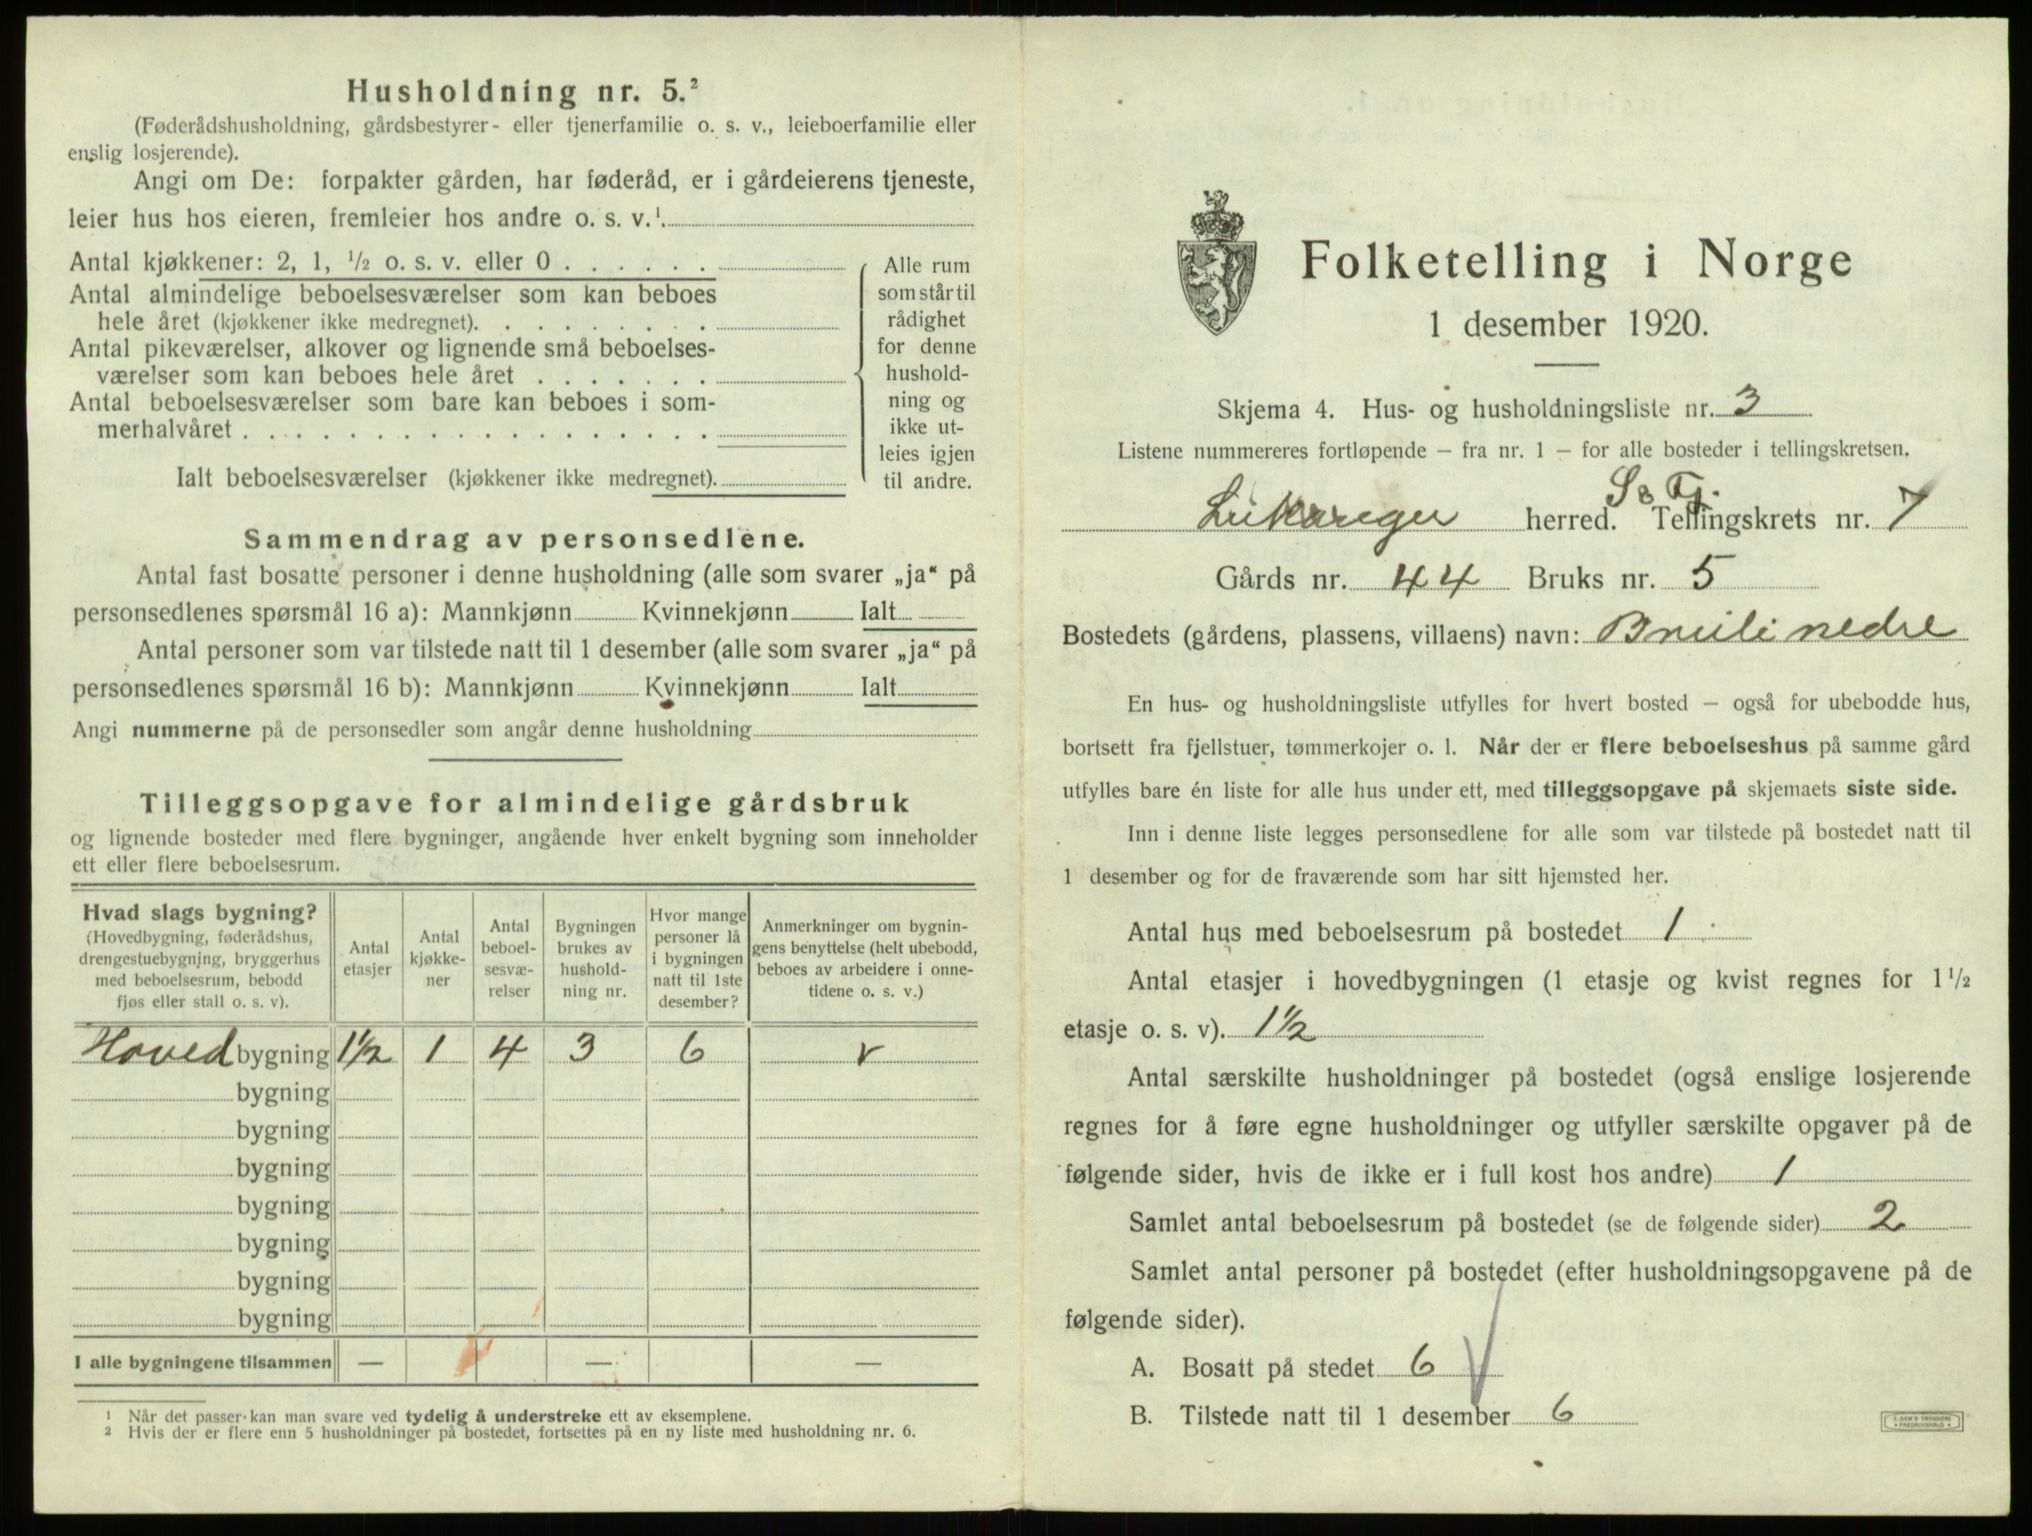 Husholdning nr. 5.²
(Føderådshusholdning, gårdsbestyrer- eller tjenerfamilie o. s. v., leieboerfamilie eller
enslig losjerende).
Angi om De: forpakter gården, har føderåd, er i gårdeierens tjeneste,
leier hus hos eieren, fremleier hos andre o. s. v.¹.
Antal kjøkkener: 2, 1, ½ o. s. v. eller 0 . . . . . .
Antal almindelige beboelsesværelser som kan beboes
hele året (kjøkkener ikke medregnet). . . . . . . . .
Antal pikeværelser, alkover og lignende små beboelses-
værelser som kan beboes hele året . . . . . . .
Antal beboelsesværelser som bare kan beboes i som-
merhalvåret . . . . . . . . . . . . . . . . . .
Ialt beboelsesværelser (kjøkkener ikke medregnet).
Alle rum
som står til
rådighet
for denne
hushold-
ning og
ikke ut-
leies igjen
til andre.
Sammendrag av personsedlene.
Antal fast bosatte personer i denne husholdning (alle som svarer „ja“ på
personsedlenes spørsmål 16 a): Mannkjønn Kvinnekjønn Ialt
Antal personer som var tilstede natt til 1 desember (alle som svarer „ja“ på
personsedlenes spørsmål 16 b): Mannkjønn Kvinnekjønn Ialt
Angi nummerne på de personsedler som angår denne husholdning
Tilleggsopgave for almindelige gårdsbruk
og lignende bosteder med flere bygninger, angående hver enkelt bygning som inneholder
ett eller flere beboelsesrum.
Hvad slags bygning?
(Hovedbygning, føderådshus,
drengestuebygning, bryggerhus
med beboelsesrum, bebodd
fjøs eller stall o. s. v).
Antal
etasjer
Antal
kjøkke-
ner
Antal
beboel-
sesvæ-
relser
Bygningen
brukes av
hushold-
ning nr.
Hvor mange
personer lå
i bygningen
natt til 1ste
desember?
Anmerkninger om bygnin-
gens benyttelse (helt ubebodd,
beboes av arbeidere i onne-
tidene o. s. v.)
Hoved bygning 1½ 1 4 3 6 v
bygning
bygning
bygning
bygning
bygning
bygning
bygning
I alle bygningene tilsammen — — —
¹ Når det passer kan man svare ved tydelig å understreke ett av eksemplene.
² Hvis der er flere enn 5 husholdninger på bostedet, fortsettes på en ny liste med husholdning nr. 6.
Folketelling i Norge
1 desember 1920.
Skjema 4. Hus- og husholdningsliste nr. 3
Listene nummereres fortløpende – fra nr. 1 – for alle bosteder i tellingskretsen.
S & Fj.
herred. Tellingskrets nr. 7
Gårds nr. 44 Bruks nr. 5
Bostedets (gårdens, plassens, villaens) navn: nedre
En hus- og husholdningsliste utfylles for hvert bosted – også for ubebodde hus,
bortsett fra fjellstuer, tømmerkojer o. l. Når der er flere beboelseshus på samme gård
utfylles bare én liste for alle hus under ett, med tilleggsopgave på skjemaets siste side.
Inn i denne liste legges personsedlene for alle som var tilstede på bostedet natt til
1 desember og for de fraværende som har sitt hjemsted her.
Antal hus med beboelsesrum på bostedet 1
Antal etasjer i hovedbygningen (1 etasje og kvist regnes for 1½
etasje o. s. v). 1½
Antal særskilte husholdninger på bostedet (også enslige losjerende
regnes for å føre egne husholdninger og utfyller særskilte opgaver på de
følgende sider, hvis de ikke er i full kost hos andre) 1
Samlet antal beboelsesrum på bostedet (se de følgende sider) 2
Samlet antal personer på bostedet (efter husholdningsopgavene på de
følgende sider).
A. Bosatt på stedet 6
B. Tilstede natt til 1 desember 6